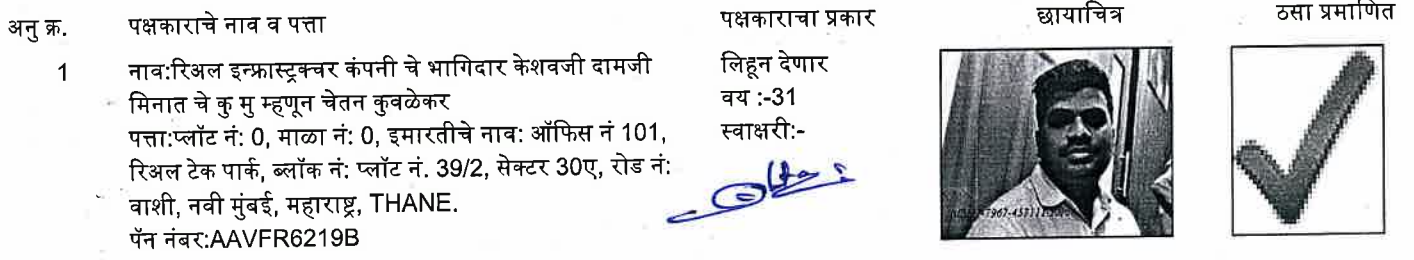 अनु क्र. पक्षकाराचे नाव व पत्ता पक्षकाराचा प्रकार छायाचित्र ठसा प्रमाणित
1 नाव:रिअल इन्फ्रास्ट्रक्चर कंपनी चे भागिदार केशवजी दामजी लिहून देणार
मिनात चे कु मु म्हणून चेतन कुवळेकर वय :-31
पत्ता:प्लॉट नं: 0, माळा नं: 0, इमारतीचे नाव: ऑफिस नं 101, स्वाक्षरी:-
रिअल टेक पार्क, ब्लॉक नं: प्लॉट नं. 39/2, सेक्टर 30ए, रोड नं:
वाशी, नवी मुंबई, महाराष्ट्र, THANE.
पॅन नंबर:AAVFR6219B